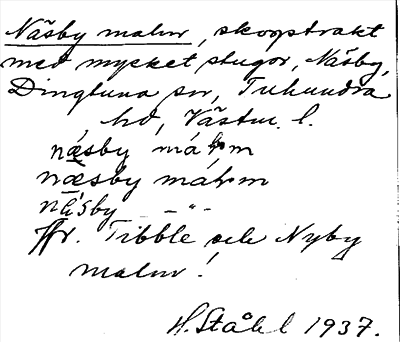 Näsby malm, skogstrakt
med mycket stugor, Näsby,
Dingtuna sn, Tuhundra
hd, Västm. l.
næsby
næsby
näsby — " —
Jfr. Tibble och Nyby
malm!
H. Ståhl 1937.